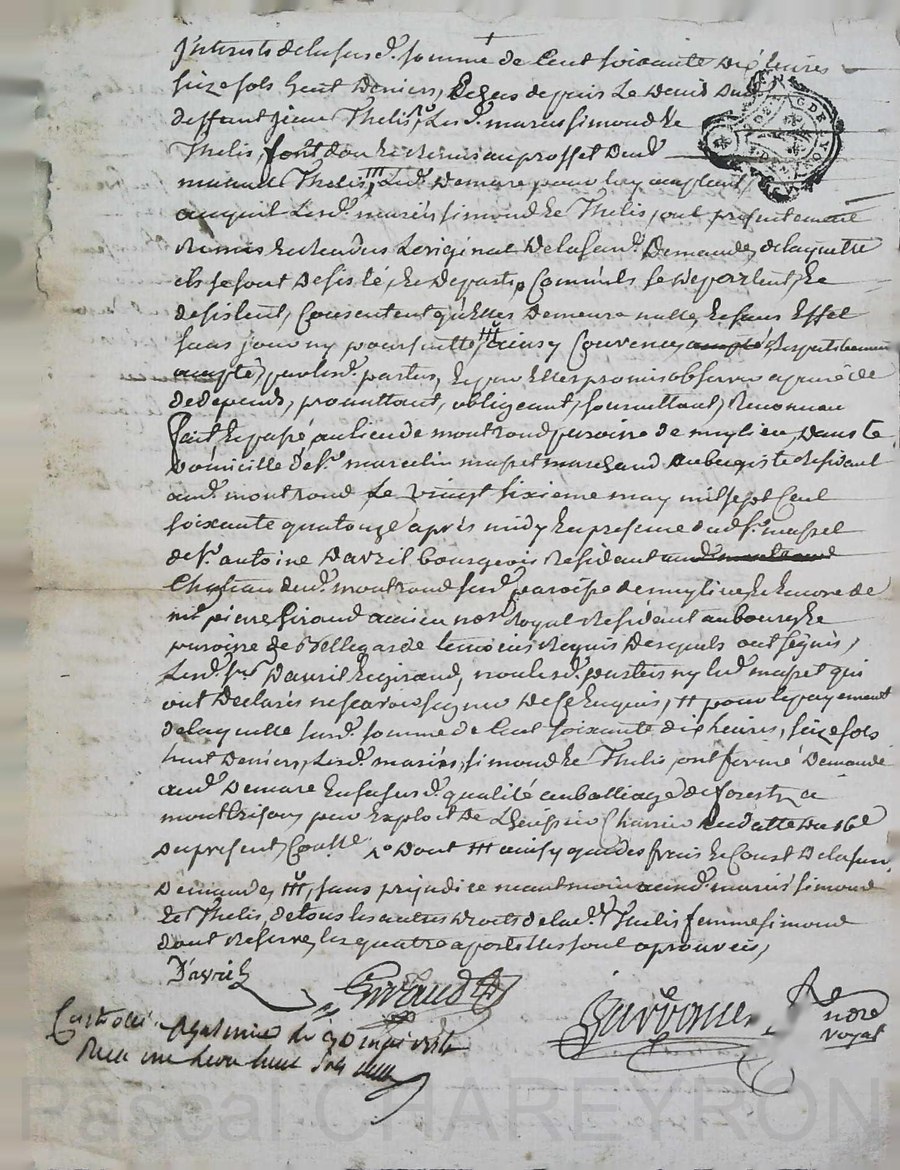 Interets de la susd. somme de Cent soixante Dix livres
seize sols huit Deniers, Echus depuis Le Deceds Dud.
deffunt jean Thelis, Les d. mariés simond Et
Thelis, font don Et Remis au proffet Dud.
Thelis, Led. Demare pour luy acceptant,
auquel Lesd. mariés simond Et Thelis, ont presentement
Remis Et Rendus Loriginal De la sus d. Demande, de laquelle
ils se sont Desisté, Et Departis, Comm'ils se Departent, Et
desistent, Consentent qu'elles Demeure nulle, Et sans Effet
sans jour ny poursuitte, ainsy Convenu, accepté, Respectivement
accepté, par lesd. parties, Et par Elles promis observer a peine de
de depends, promettant, obligeant, soumettant, Renonceant
fait Et passé au lieu de montrond paroisse de meylieu, Dans Le
Domicille de sr. marcelin masset marchand Aubergiste Residant
aud. montrond Le vingt sixieme may mil sept Cent
soixante quatorze après midy En presence dud. sr. masset
de sr. antoine Davril bourgeois Residant aud. montrond
Chateau dud. montrond sus d. paroisse de meylieu, Et Encore de
mr. pierre Giraud ancien nore. Royal Residant au bourg Et
paroisse de Bellegarde temoins Requis Desquels ont signés,
Lesd. srs. Davril Et giraud, non lesd. parties ny led. masset qui
ont Declarés ne scavoir signer De Ce Enquis, pour le payement
de laquelle susd. somme de Cent soixante dix livres, seize sols
huit Deniers, Lesd. mariés, simond Et Thelis, ont formé Demande
aud. Demare En sa sus d. qualité au balliage de forest a
montbrison, par Exploit de L'huissier Charrin En datte du 16e
du present, Con.lle Dont ainsy que des frais Et Coust De la sus d.
Demande, sans prejudice neantmoins auxd. mariés simond
Et Thelis, de tous les autres Droits de lad. Thelis femme simond
dont Reserve, Les quatre apostilles sont aprouvées,
Davril
Giraud
nore
royal
Con.lle a St Galmier le 30 may 1774
Recu une livre huit sols
Pascal CHAREYRON